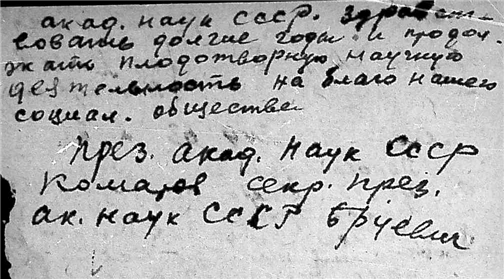 акад. наук СССР. здравст-
вовать долгие годы и продол-
жать плодотворную научную
деятельность на благо нашего
социал. общества
През. акад. наук СССР
Комаров секр. През.
ак. наук СССР Бруевич